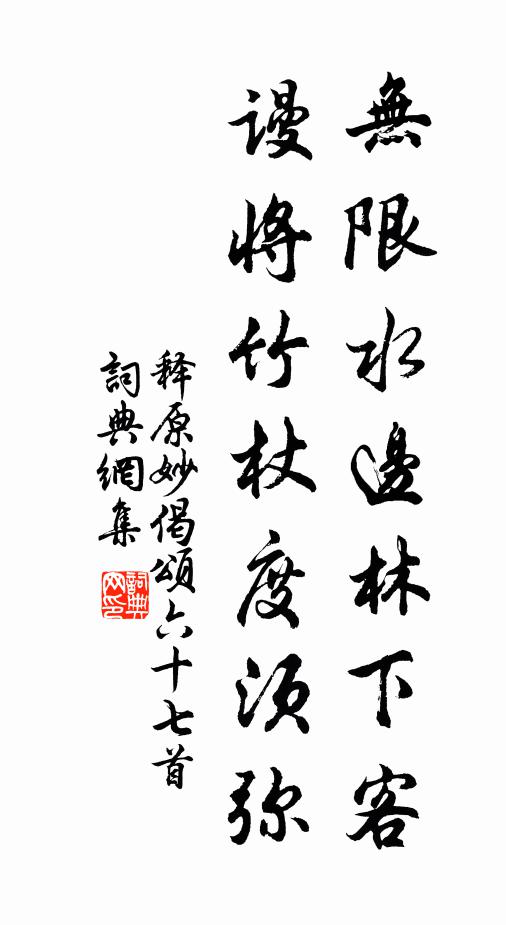 無限水邊林下客
謾將竹杖度須弥
释原妙偈頌六十七首
詞典網集
詞典
网印